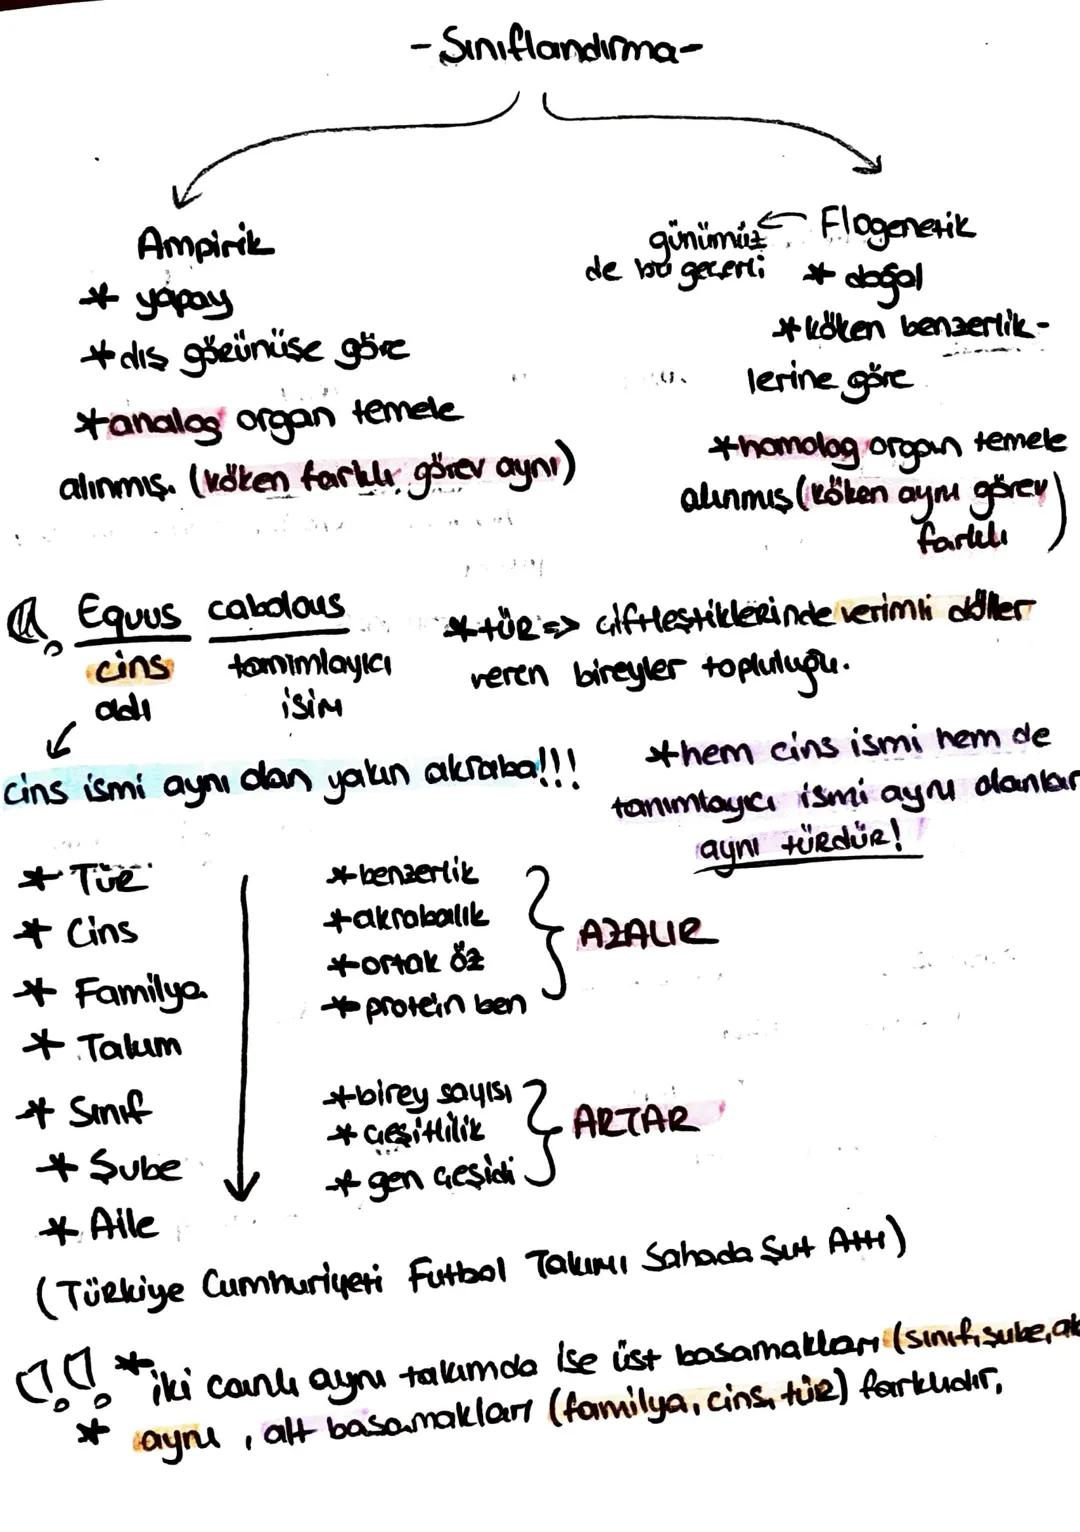 -Sınıflandırma-
Ampirik
* yapay
* dış görünüşe göre
*analog organ temele
alınmış. (köken farklı, görev aynı)
günümüz ← Flogenetik
de bu geçerli
* doğal
*köken benzerlik-
lerine göre
*homolog organ temele
alınmış (köken aynı görev
farklı)
Equus cabolous
cins tanımlayıcı
adı isim
*tür => çiftleştiklerinde verimli döller
veren bireyler topluluğu.
cins ismi aynı olan yakın akraba!!!
*hem cins ismi hem de
tanımlayıcı ismi aynı olanlar
aynı türdür!
* Tür
* Cins
* Familya
* Takım
* Sınıf
* Şube
* Aile
*benzerlik
*akrabalık
*ortak öz
*protein ben
AZALIR
*birey sayısı
* çeşitlilik
* gen çeşidi
ARTAR
(Türkiye Cumhuriyeti Futbol Takımı Sahada Şut Attı)
!! * iki canlı aynı takımda ise üst basamakları (sınıf, şube, al
* aynı, alt basamakları (familya, cins, tür) farklıdır,